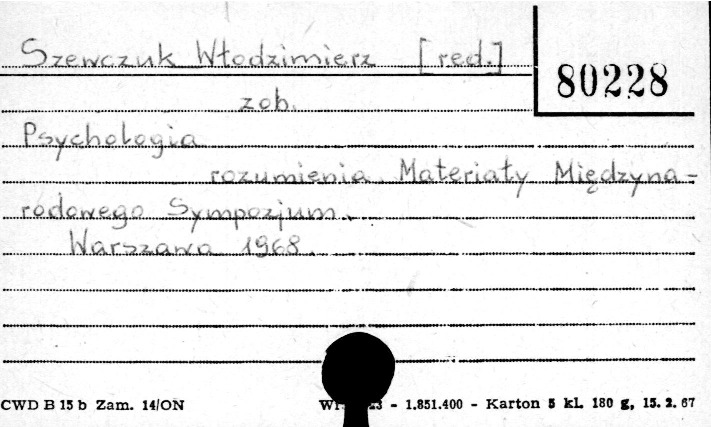 Szewczuk Włodzimierz [red.]
80228
zob.
Psychologia
rozumienia. Materiały Międzyna-
rodowego Sympozjum.
Warszawa 1968.
CWD B 15 b Zam. 14/ON
- 1.851.400 - Karton 5 kl. 180 g, 15. 2. 67